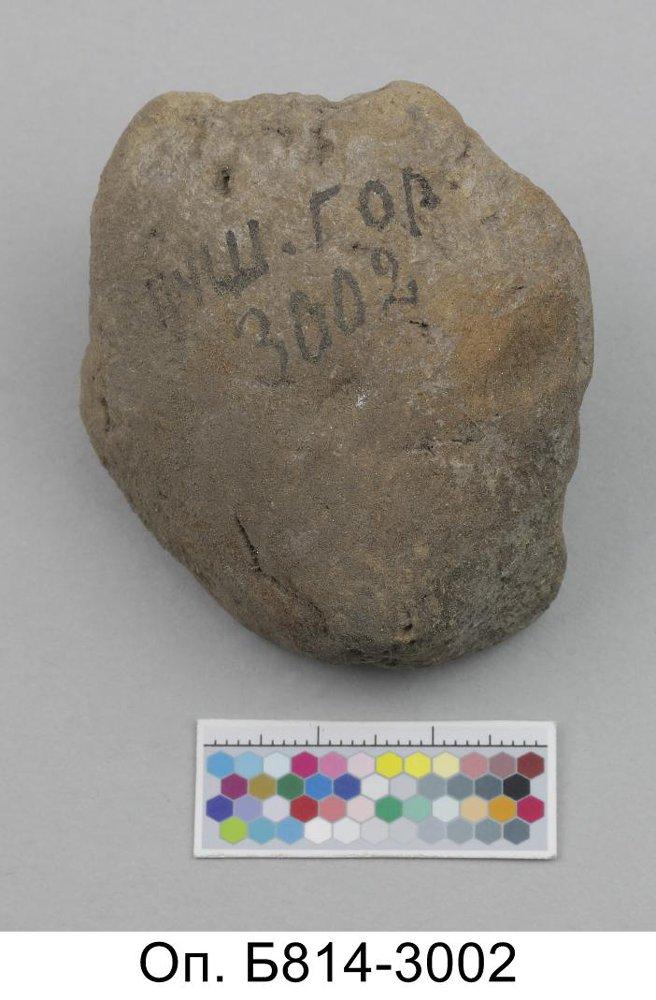 пуш. гор
3002
Оп. Б814-3002